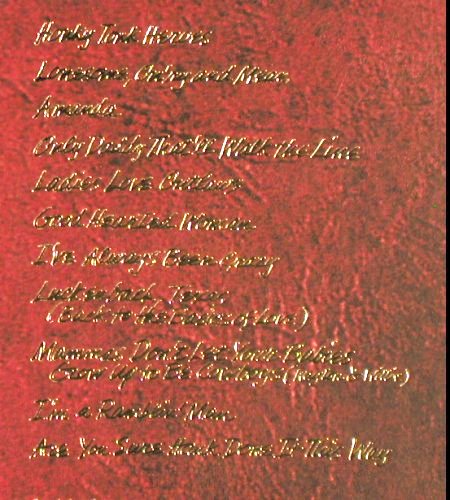 Honky Tonk Heroes
Lonesome, On'ry and Mean
Amanda
Only Daddy That'll Walk the Line
Ladies Love Outlaws
Good Hearted Woman
I've Always Been Crazy
Luckenbach, Texas
(Back to the Basics of Love)
Mammas Don't Let Your Babies
Grow Up to Be Cowboys (Waylon & Willie)
I'm a Ramblin' Man
Are You Sure Hank Done It This Way